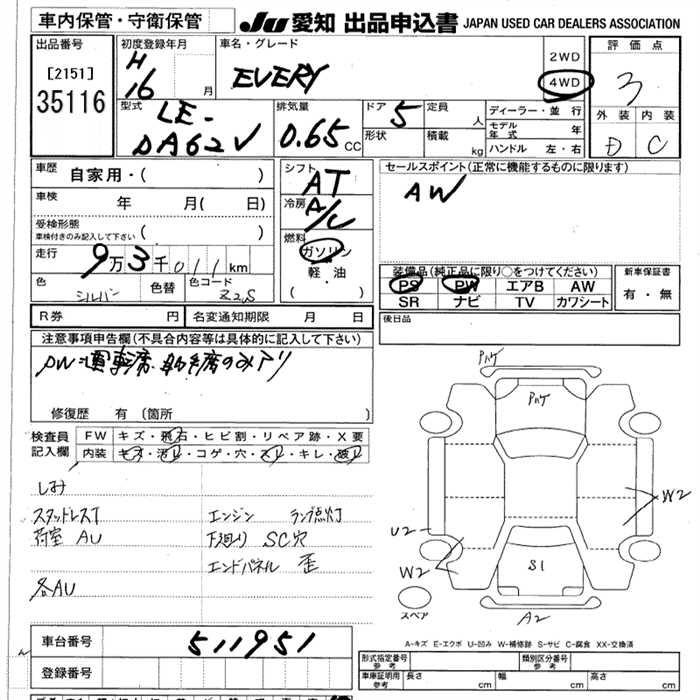 車内保管・守衛保管
JU 愛知 出品申込書 JAPAN USED CAR DEALERS ASSOCIATION
出品番号
[2151]
35116
初度登録年月
H
16 月
車名・グレード
EVERY
2WD
4WD
評価点
3
外装 内装
D C
型式
LE-
DA62V
排気量
0.65 CC
ドア 5
形状
定員 人
積載 kg
ディーラー・並行
モデル年式 年
ハンドル 左・右
車歴
自家用・( )
車検 年 月( 日)
受検形態
車検付きのみ記入して下さい ( )
走行
9万3千011km
色 シルバー 色替 色コード Z2S
シフト
AT
冷房
A/C
燃料
ガソリン
軽・油
( )
セールスポイント(正常に機能するものに限ります)
AW
装備品(純正品に限り○をつけてください)
PS PW エアB AW
SR ナビ TV カワシート
新車保証書
有・無
R券 円 名変通知期限 月 日
後日品
注意事項申告欄(不具合内容等は具体的に記入して下さい)
PW 運転席 助手席のみアリ
修復歴 有(箇所 )
検査員
記入欄
FW キズ・飛石・ヒビ割・リペア跡・X要
内装 キズ・汚レ・コゲ・穴・スレ・キレ・破レ
しみ
スタッドレスT
荷室 AU
各AU
エンジン ランプ点灯
下廻り SC穴
エンドパネル 歪
Pハゲ
Pハゲ
W2
U2
W2
S1
A2
スペア
A-キズ E-エクボ U-凹み W-補修跡 S-サビ C-腐食 XX-交換済
車台番号
511951
登録番号
形式指定番号
参考
類別区分番号
参考
車庫証明用
参考
長さ cm 幅 cm 高さ cm